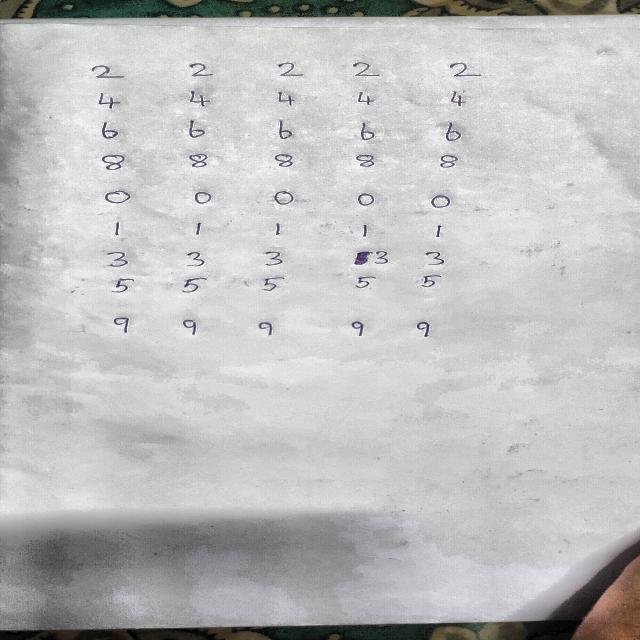 2 2 2 2 2
4 4 4 4 4
6 6 6 6 6
8 8 8 8 8
0 0 0 0 0
1 1 1 1 1
3 3 3 3 3
5 5 5 5 5
9 9 9 9 9